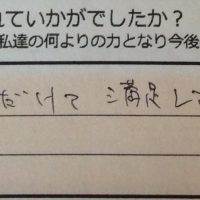 れていかがでしたか？
私達の何よりの力となり今後
だけて 満足して